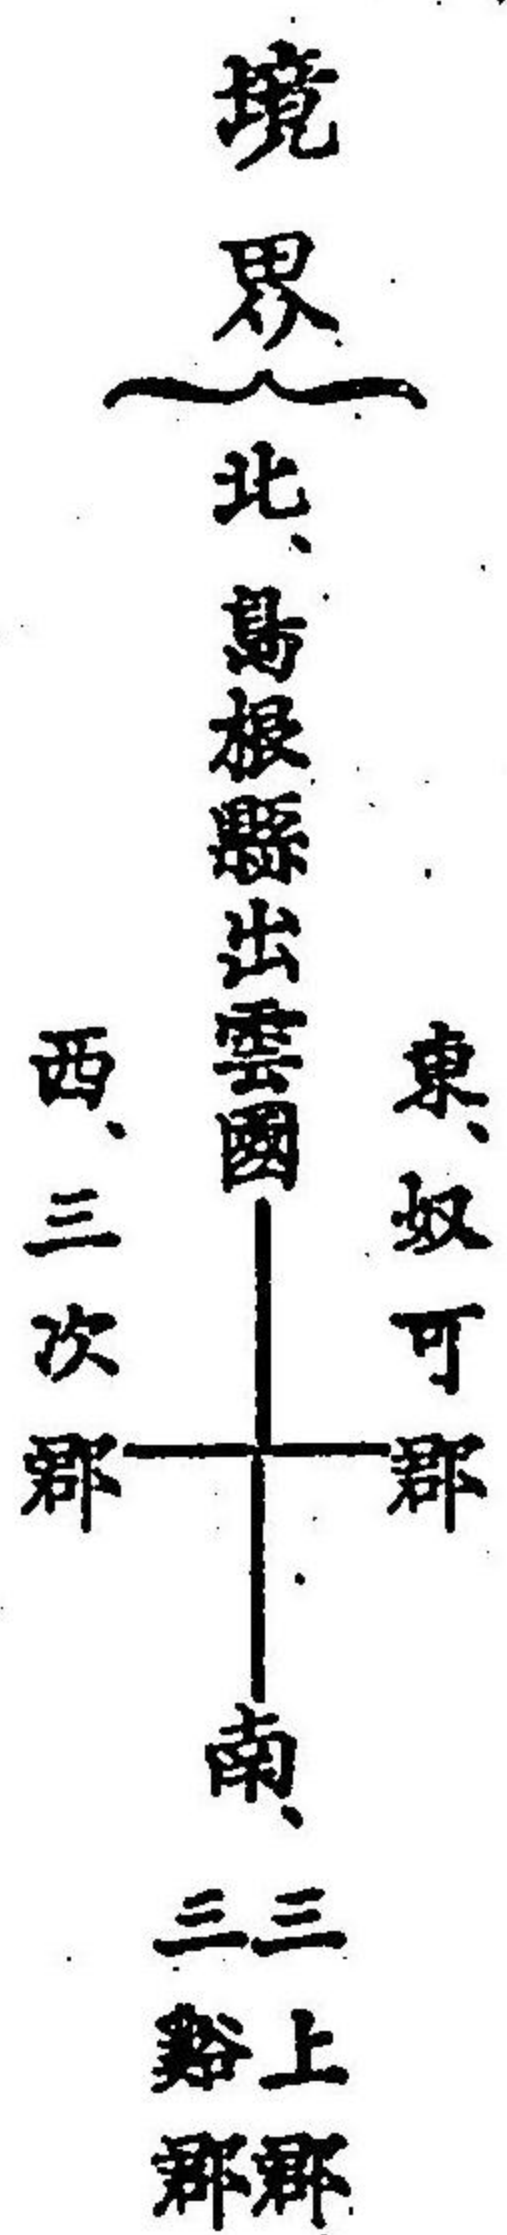 境界
北、島根縣出雲國
東、奴可郡
西、三次郡
南、三上郡
三谿郡